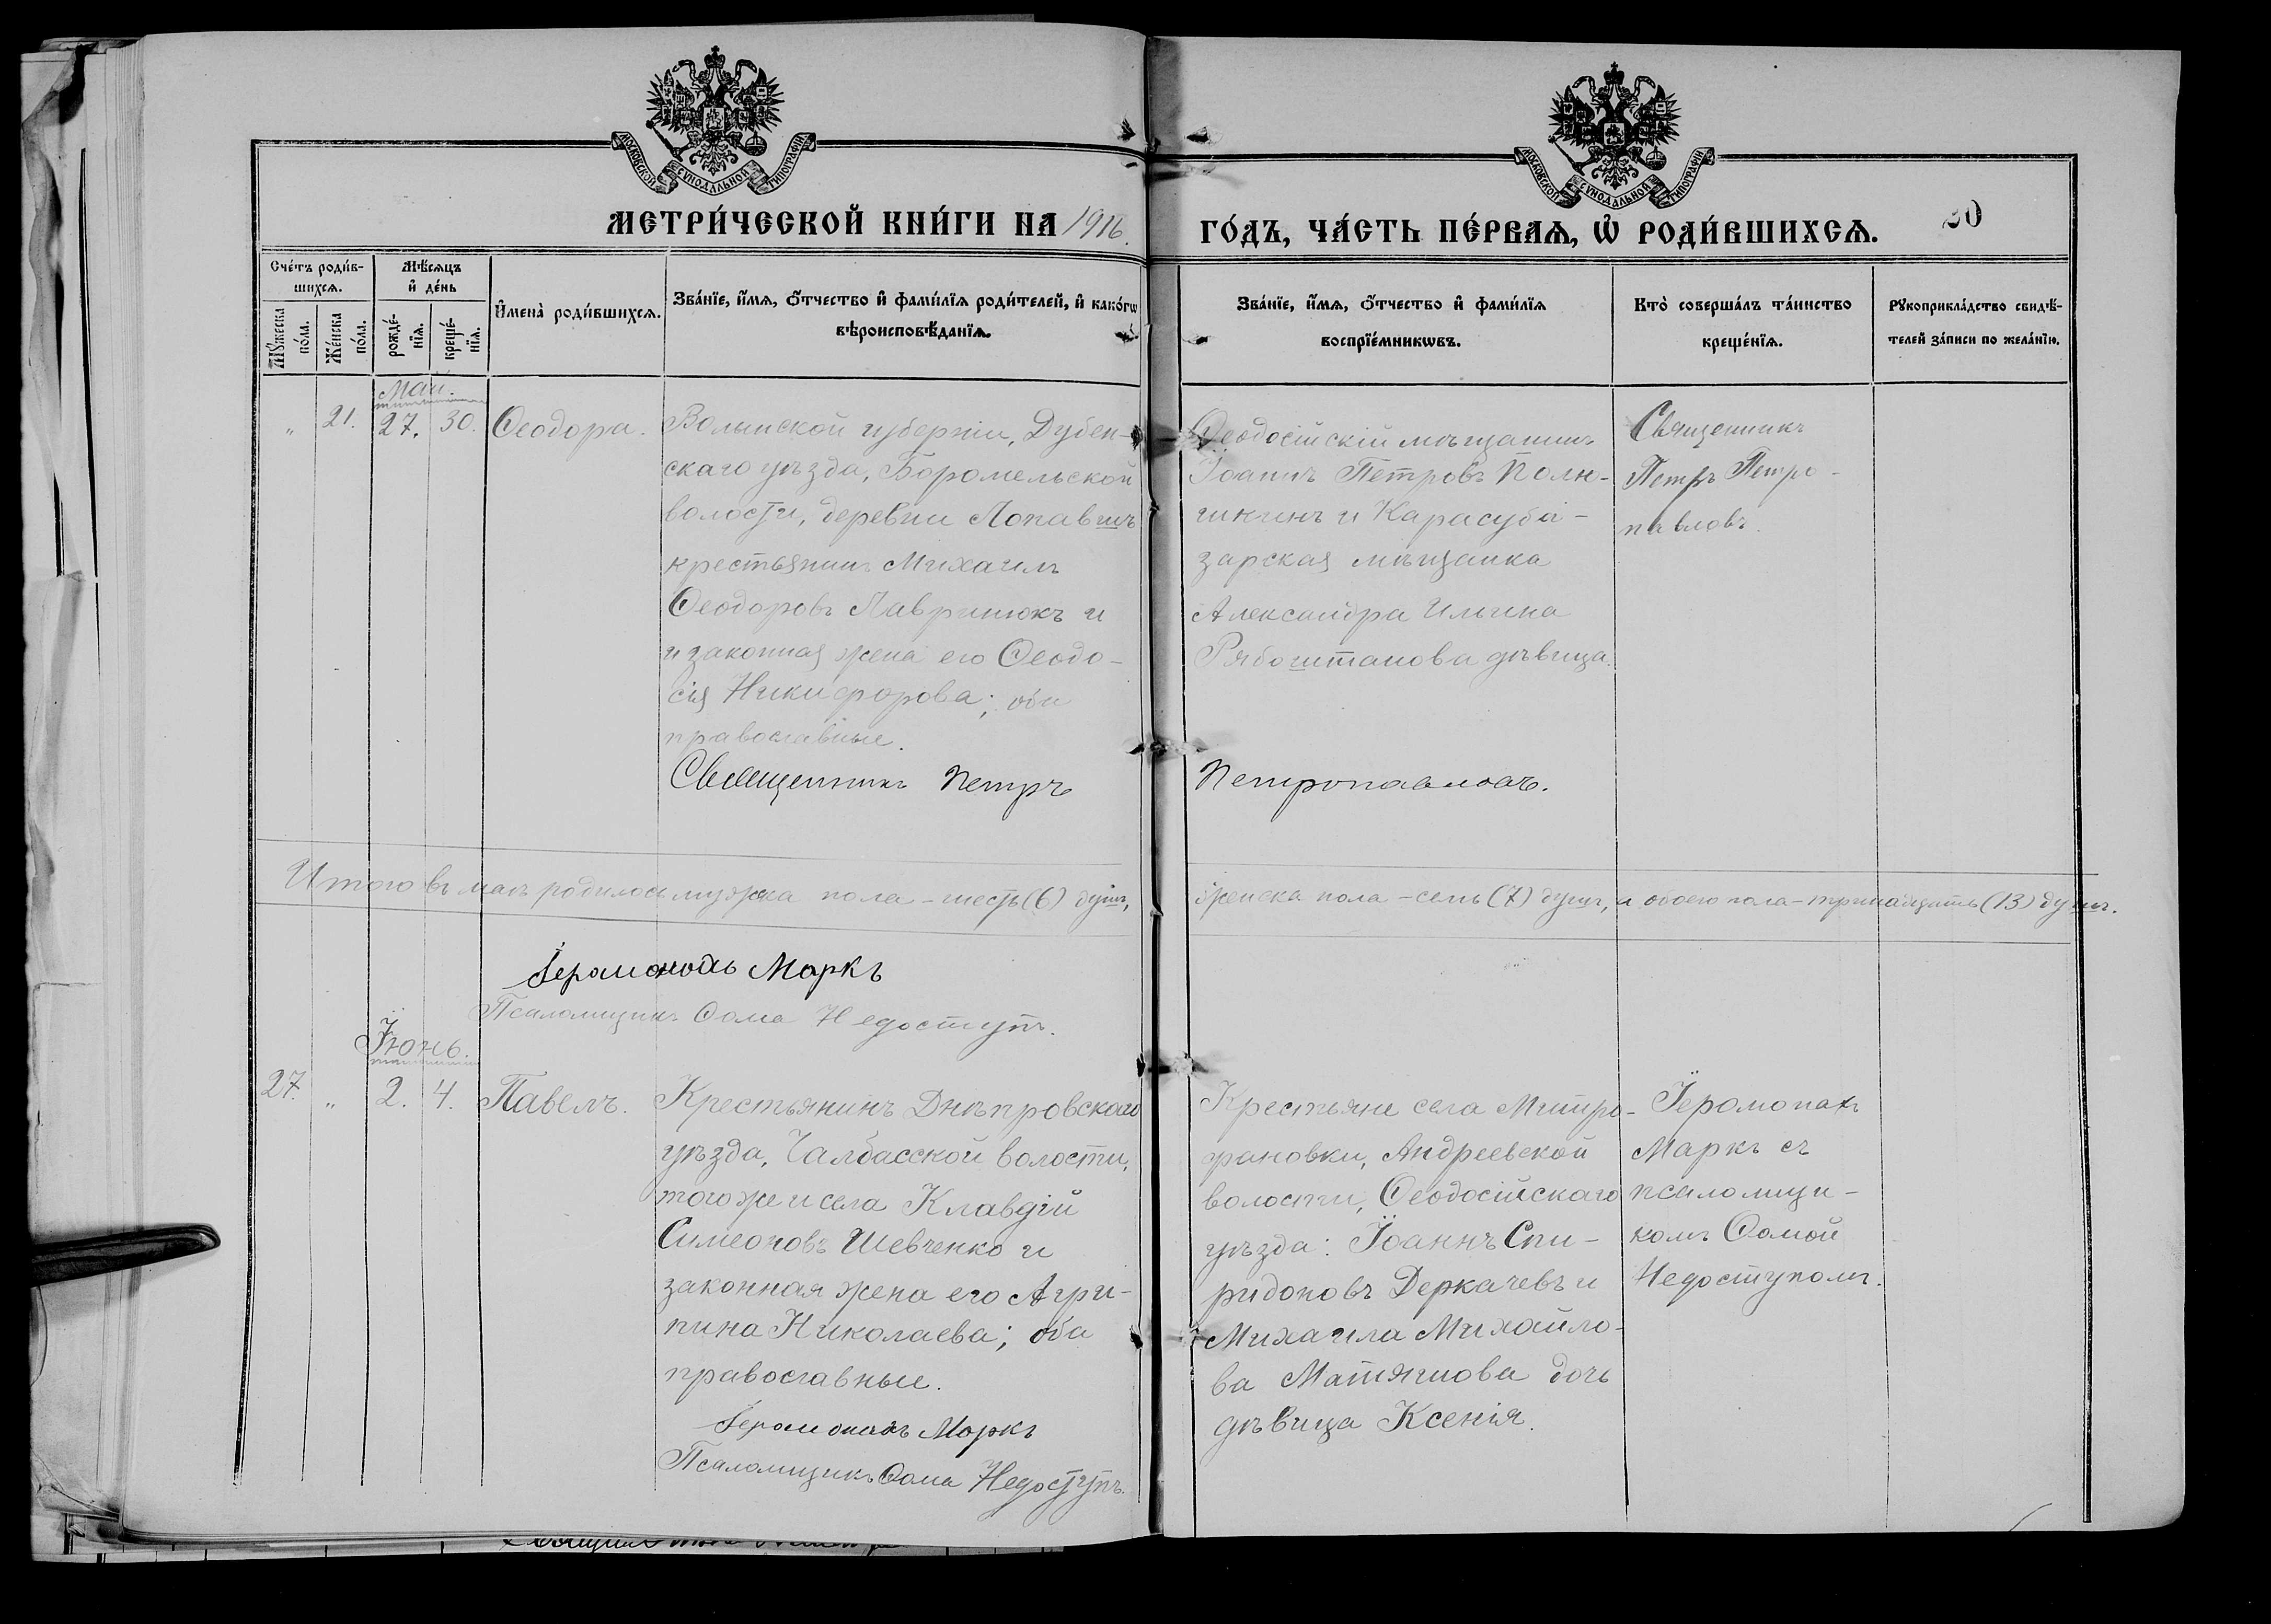 МОСКОВСКОЙ СѴНОДАЛЬНОЙ ТИПОГРАФІИ
МОСКОВСКОЙ СѴНОДАЛЬНОЙ ТИПОГРАФІИ
МЕТРИ́ЧЕСКОЙ КНИ́ГИ НА 1916.
ГО́ДЪ, ЧА́СТЬ ПЕ́РВАѦ, Ѡ РОДИ́ВШИХСѦ.
30
Сче́тъ роди́в-
шихсѧ.
Мѣ́сѧцъ
и҆ де́нь
И҆мена̀ роди́вшихсѧ.
Зва́нїе, и҆́мѧ, ѻ҆́тчество и҆ фами́лїѧ роди́телей, и҆ како́гѡ
вѣроисповѣ́данїѧ.
Мꙋ́жеска
по́ла.
Же́нска
по́ла.
рожде́-
нїѧ.
креще́-
нїѧ.
Зва́нїе, и҆́мѧ, ѻ҆́тчество и҆ фами́лїѧ
воспрїе́мникѡвъ.
Кто̀ соверша́лъ та́инство
креще́нїѧ.
Рꙋкоприкла́дство свидѣ́-
телей за́писи по жела́нїю.
Май.
" 21. 27. 30. Ѳеодора.
Волынской губерніи, Дубен-
скаго уѣзда, Боромельской
волости, деревни Лопавшъ
крестьянинъ Михаилъ
Ѳеодоровъ Лавринюкъ и
и законная жена его Ѳеодо-
сія Никифорова; оба
православные.
Священникъ Петръ
Ѳеодосійскій мѣщанинъ
Іоаннъ Петровъ Полю-
шкинъ и Карасуба-
зарская мѣщанка
Александра Ильина
Рябоштанова дѣвица.
Петропавловъ.
Священникъ
Петръ Петро-
павловъ.
Итого въ маѣ родилось мужска пола - шесть (6) душъ,
женска пола - семь (7) душъ, а обоего пола - тринадцать (13) душъ.
Іеромонахъ Маркъ
Псаломщикъ Ѳома Недоступъ.
Іюнь.
27. " 2. 4. Павелъ.
Крестьянинъ Днѣпровскаго
уѣзда, Чалбасской волости,
того же и села Клавдій
Симеоновъ Шевченко и
законная жена его Агри-
пина Николаева; оба
православные.
Іеромонахъ Маркъ
Псаломщикъ Ѳома Недоступъ.
Крестьяне села Митро-
фановки, Андреевской
волости, Ѳеодосійскаго
уѣзда: Іоаннъ Спи-
ридоновъ Деркачевъ и
Михаила Михайло-
ва Матяшова дочь
дѣвица Ксенія.
Іеромонахъ
Маркъ съ
псаломщи-
комъ Ѳомой
Недоступомъ.